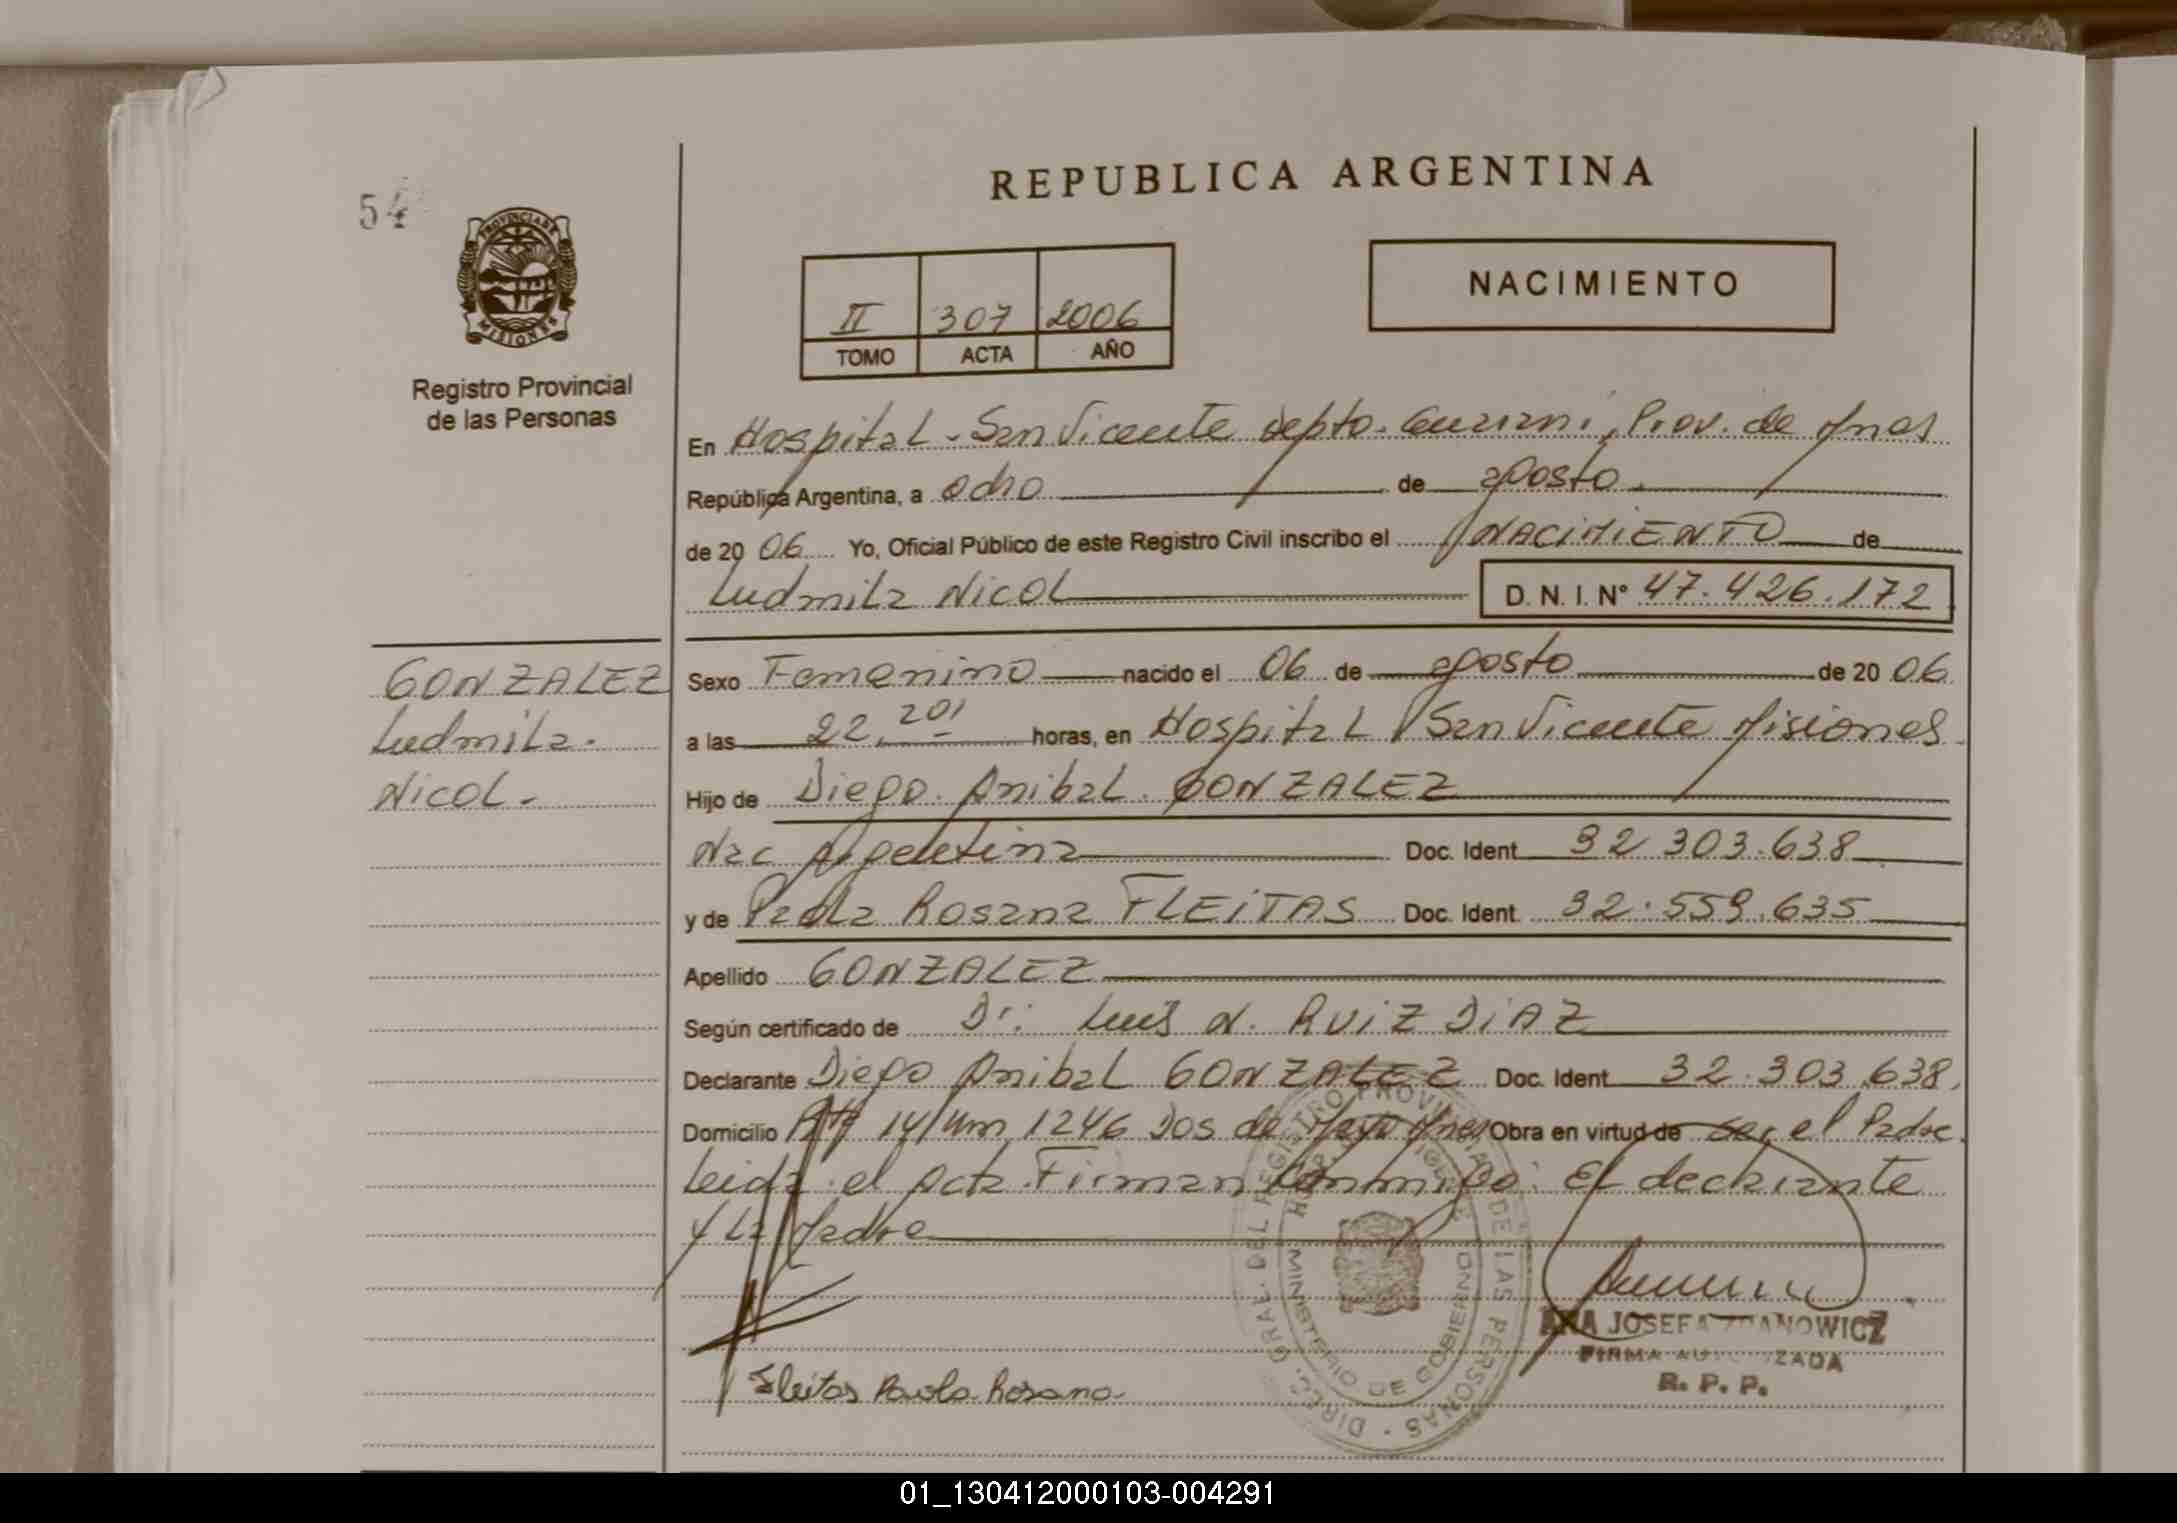 54
REPUBLICA ARGENTINA
PROVINCIA DE
MISIONES
Registro Provincial
de las Personas
II 307 2006
TOMO ACTA AÑO
NACIMIENTO
En Hospital - San Vicente depto. Guarani, Prov. de Mnes
República Argentina, a ocho de agosto.
de 20 06 Yo, Oficial Público de este Registro Civil inscribo el NACIMIENTO de
Ludmila Nicol
D. N. I. N° 47.426.172
GONZALEZ
Ludmila.
Nicol.
Sexo Femenino nacido el 06 de agosto de 20 06
a las 22,20' horas, en Hospital San Vicente Misiones
Hijo de Diego Anibal GONZALEZ
Nac Argentina Doc. Ident 32.303.638
y de Paola Rosana FLEITAS Doc. Ident. 32.559.635
Apellido GONZALEZ
Según certificado de Dr: Luis N. RUIZ DIAZ
Declarante Diego Anibal GONZALEZ Doc. Ident 32.303.638
Domicilio 14 Km 1246 Dos de Mayo Mnes Obra en virtud de ser el Padre
Leida el Acta Firman Conmigo: El declarante
y La Madre
DIREC. GRAL. DEL REGISTRO PROVINCIAL DE LAS PERSONAS
MINISTERIO DE GOBIERNO
ANA JOSEFA ZDANOWICZ
FIRMA AUTORIZADA
R. P. P.
Fleitas Paola Rosana
01_130412000103-004291